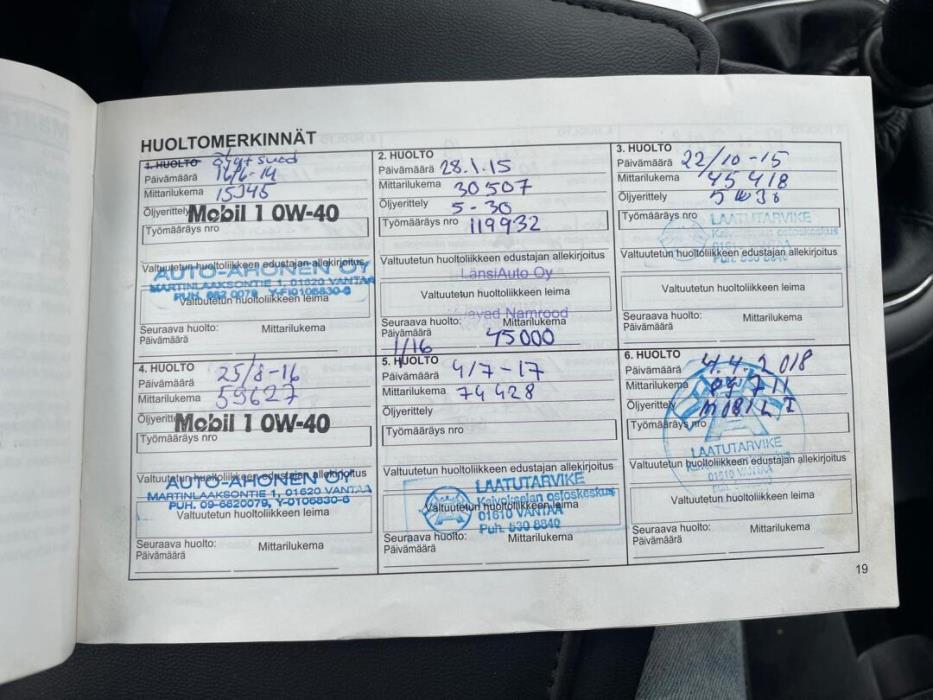 HUOLTOMERKINNÄT
1. HUOLTO öljy + suod
Päivämäärä 16/6-14
Mittarilukema 15345
Öljyerittely Mobil 1 0W-40
Työmääräys nro
Valtuutetun huoltoliikkeen edustajan allekirjoitus
AUTO-AHONEN OY
MARTINLAAKSONTIE 1, 01620 VANTAA
PUH. 682 0079, Y-FI0106830-6
Valtuutetun huoltoliikkeen leima
Seuraava huolto: Mittarilukema
Päivämäärä
2. HUOLTO
Päivämäärä 28.1.15
Mittarilukema 30507
Öljyerittely 5-30
Työmääräys nro 119932
Valtuutetun huoltoliikkeen edustajan allekirjoitus
LänsiAuto Oy
Valtuutetun huoltoliikkeen leima
Namrood
Seuraava huolto: Mittarilukema
Päivämäärä
1/16 45000
3. HUOLTO
Päivämäärä 22/10-15
Mittarilukema 45418
Öljyerittely 5W30
Työmääräys nro
LAATUTARVIKE
Keivokselan ostoskeskus
01610 VANTAA
Puh. 530 8840
Valtuutetun huoltoliikkeen edustajan allekirjoitus
Valtuutetun huoltoliikkeen leima
Seuraava huolto: Mittarilukema
Päivämäärä
4. HUOLTO
Päivämäärä 25/8-16
Mittarilukema 59627
Öljyerittely
Mobil 1 0W-40
Työmääräys nro
Valtuutetun huoltoliikkeen edustajan allekirjoitus
AUTO-AHONEN OY
MARTINLAAKSONTIE 1, 01620 VANTAA
PUH. 09-6820079, Y-0106830-6
Valtuutetun huoltoliikkeen leima
Seuraava huolto: Mittarilukema
Päivämäärä
5. HUOLTO
Päivämäärä 4/7-17
Mittarilukema 74428
Öljyerittely
Työmääräys nro
Valtuutetun huoltoliikkeen edustajan allekirjoitus
LAATUTARVIKE
Keivokselan ostoskeskus
Valtuutetun huoltoliikkeen leima
01610 VANTAA
Puh. 530 8840
Seuraava huolto: Mittarilukema
Päivämäärä
6. HUOLTO
Päivämäärä 4.4.2018
Mittarilukema
Öljyerittely MOBIL 1
Työmääräys nro
LAATUTARVIKE
Valtuutetun huoltoliikkeen edustajan allekirjoitus
01610 VANTAA
Valtuutetun huoltoliikkeen leima
Seuraava huolto: Mittarilukema
Päivämäärä
19